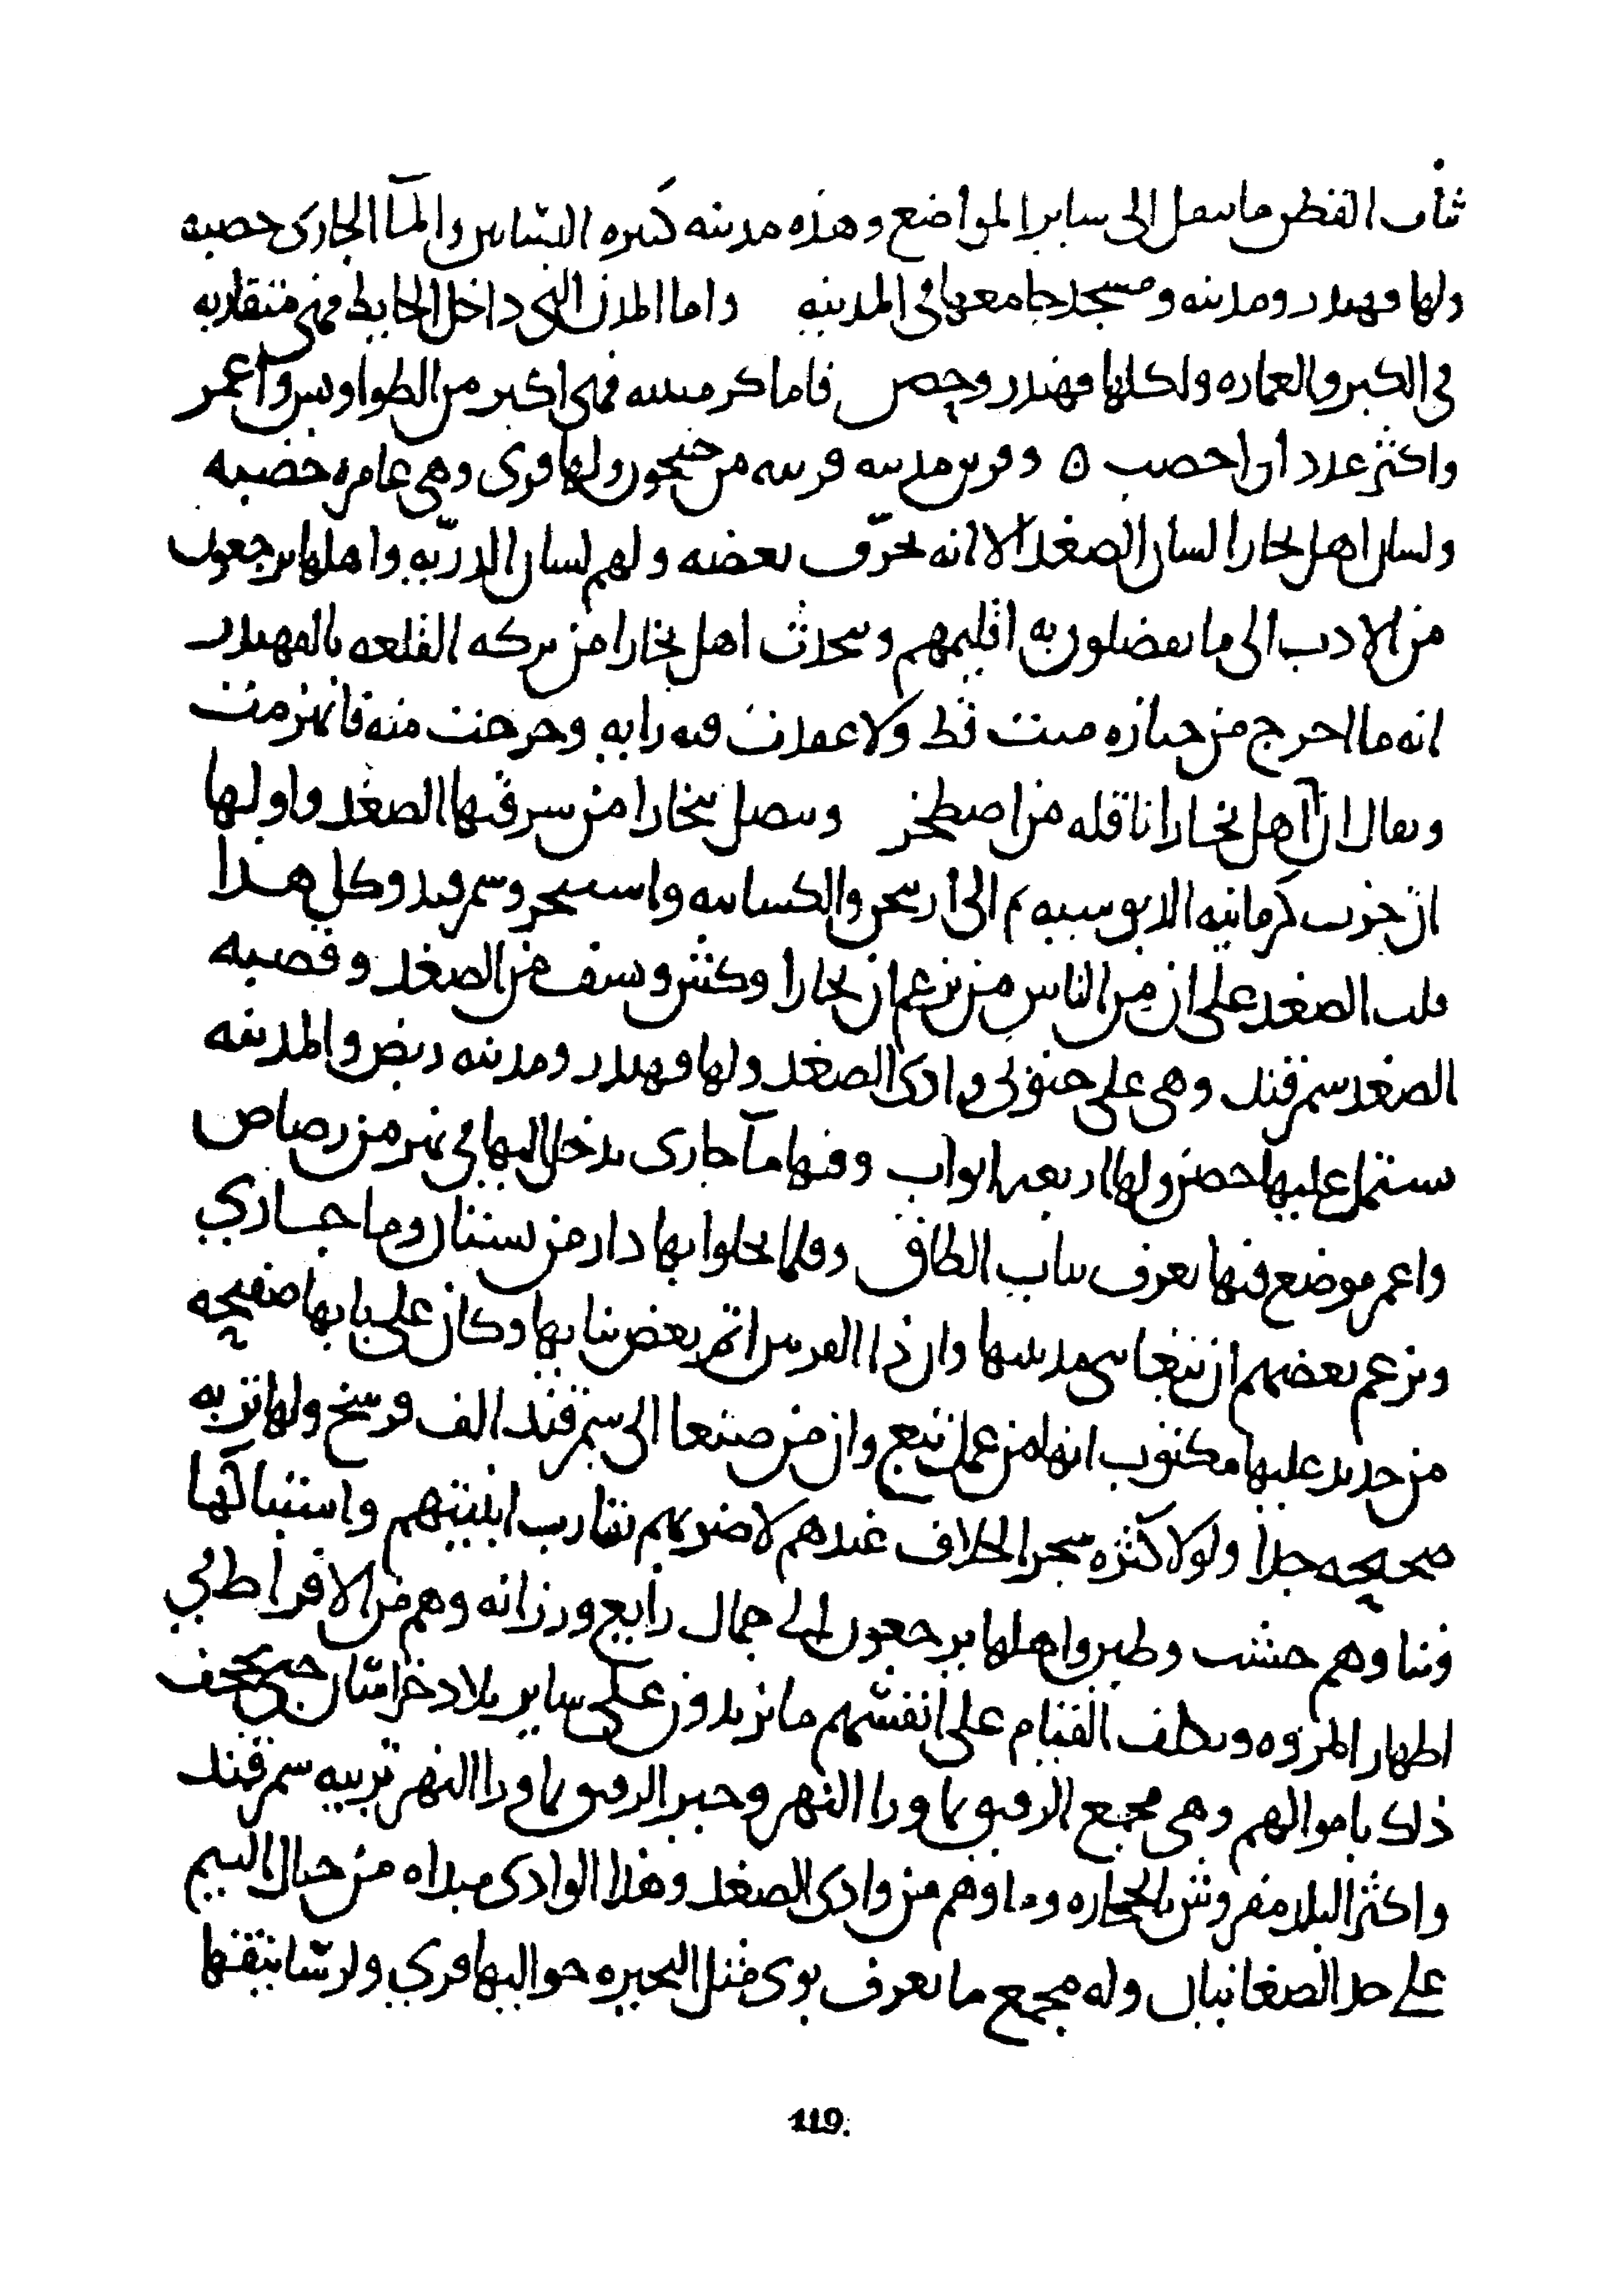 ثياب القطن ما ينقل الى ساير المواضع وهذه مدينه كثيره البساتين والمآ الجارى خصبه
ولها قهندر ومدينه ومسجد جامعها في المدينه واما المدن التي داخل الحايط فهي متقاربه
في الكبر والعماره ولكلها قهندر وحصن فاما كرمينيه فهى اكبر من الطواويس واعمر
واكثر عددا واخصب ه وفربر مدينه قريبه من جيحون ولها قرى وهي عامره خصبه
ولسان اهل بخارا لسان الصغد الا انه يحرّف بعضه ولهم لسان الدريّه واهلها يرجعون
من الادب الى ما يفضلون به اقليمهم ويتحدث اهل بخارا من بركه القلعه بالقهندر
انه ما اخرج من جنازه ميت قط ولا عقدت فيه رايه وخرجت منه فانهزمت
ويقال ان اهل بخارا ناقله من اصطخر ويتصل ببخارا من سرقيها الصغد واولها
ان جزت كرمانيه الدبوسيه ثم الى اربنجن والكشانيه واستيخن وسمرقند وكل هذا
قلب الصغد على ان من الناس من يزعم ان بخارا وكش ونسف من الصغد وقصبه
الصغد سمرقند وهي على جنوبي وادى الصغد ولها قهندر ومدينه ربض والمدينه
يشتمل عليها حصن ولها اربعه ابواب وفيها مآ جارى يدخل اليها في نهر من رصاص
واعمر موضع فيها يعرف بباب الطاق وقلما يخلوا بها دار من بستان وما جاري
ويزعم بعضهم ان تبعا بنى مدينتها وان ذا القرنين اتم بعض بنايها وكان على بابها صفيحه
من حديد عليها مكتوب انها من عمل تبع وان من صنعا الى سمرقند الف فرسخ ولها تربه
صحيحه جدا ولولا كثره سجر الخلاف عندهم لاضر بهم تقارب ابنيتهم واستباكها
وبناوهم خشب وطين واهلها يرجعون الى جمال رايع ورزانه وهم من الافراط في
اظهار المروه وتكلف القيام على انفسهم ما يزيدون على ساير بلاد خراسان حتى يجحف
ذلك باموالهم وهي مجمع الرقيق بما ورا النهر وخير الرقيق بما ورا النهر تربيه سمرقند
واكثر البلد مفروش بالحجاره وماوهم من وادى الصغد وهذا الوادى مبداه من جبال البتم
على حد الصغانيان وله مجمع ما يعرف بوى مثل البحيره حواليها قري ولرشا
119.